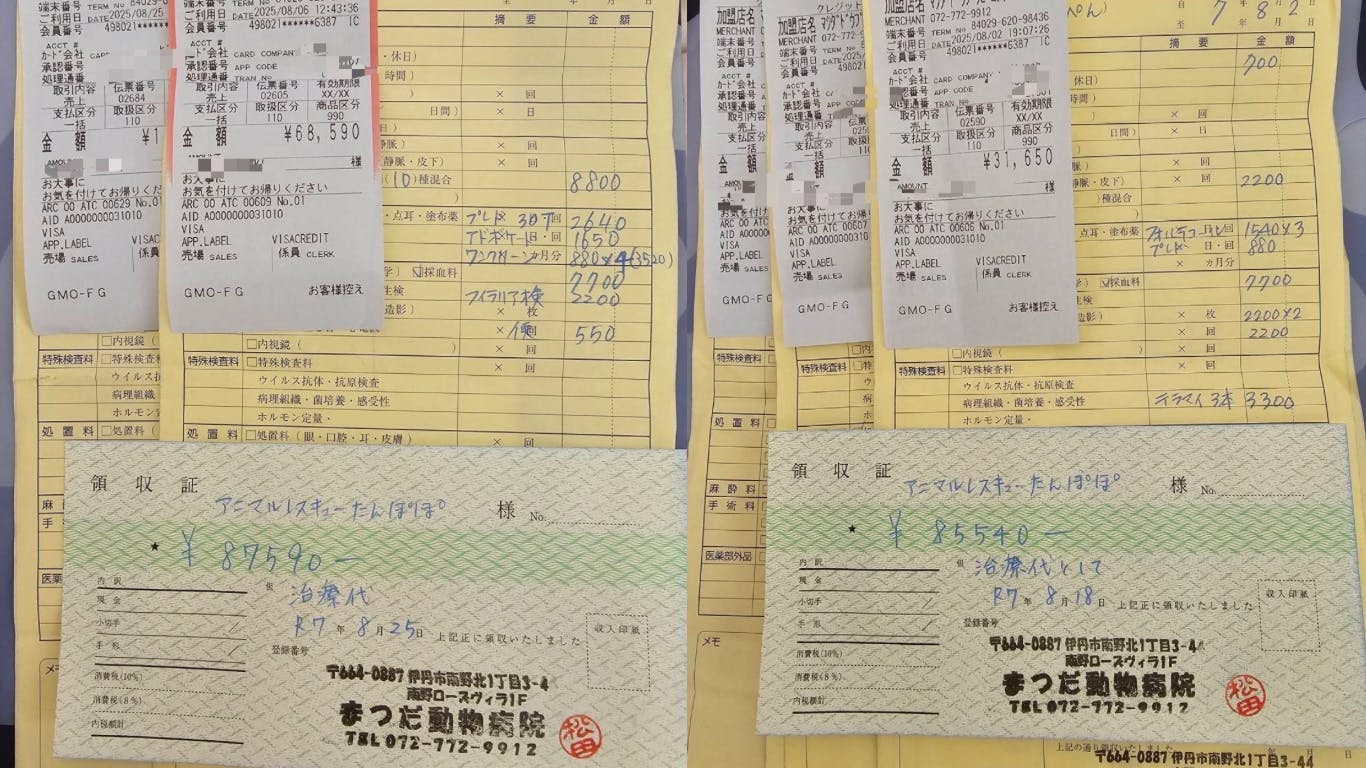 端末番号 TERM No 84029-6
ご利用日 DATE 2025/08/25
会員番号 498021
ACCT #
カード会社
承認番号
処理通番
取引内容 伝票番号
売上 02684
支払区分 取扱区分
一括 110
金 額 ¥1
AMOUNT
お大事に
お気を付けてお帰りくだ
ARC 00 ATC 00629 No.01
AID A0000000031010
VISA
APP.LABEL VISAC
売場 SALES 係員
GMO-FG
端末番号 TERM No
ご利用日 DATE 2025/08/06 12:43:36
会員番号 498021******6387 IC
ACCT #
カード会社 CARD COMPANY
承認番号 APP CODE
処理通番 TRAN No
取引内容 伝票番号 有効期限
売上 02605 XX/XX
支払区分 取扱区分 商品区分
一括 110 990
金 額 ¥68,590
様
お大事に
お気を付けてお帰りください
ARC 00 ATC 00609 No.01
AID A0000000031010
VISA
APP.LABEL VISACREDIT
売場 SALES 係員 CLERK
GMO-FG お客様控え
年 月 日
摘 要 金 額
・休日)
時間)
× 回
日間) × 日
× 回
静脈・皮下) × 回
(10)種混合 8800
・点耳・塗布薬 プレド 30T 回 2640
アドボケート 日・回 1650
ワンクリーン カ月分 880×4(3520)
学) ☑採血料 7700
生検 フィラリア検 2200
造影) × 枚
× 便 回 550
□内視鏡( ) × 回
特殊検査料 □特殊検査料 × 回
ウイルス抗体・抗原検査
病理組織・菌培養・感受性
ホルモン定量・
処 置 料 □処置料(眼・口腔・耳・皮膚) × 回
領 収 証
アニマルレスキューたんぽぽ 様 No.
★ ¥ 87590-
内 訳
現 金
小切手
手 形
消費税(10%)
消費税(8%)
内税額計
但 治療代
R7 年 8 月 25 日 上記正に領収いたしました
登録番号
収入印紙
〒664-0887 伊丹市南野北1丁目3-4
南野ローズヴィラ1F
まつだ動物病院
TEL 072-772-9912
松田
メモ
クレジット
加盟店名 マツダドウブ
MERCHANT 072-772-9
加盟店名
MERCHANT 072-772-9912
端末番号 84029-620-98436
ご利用日 DATE 2025/08/02 19:07:26
会員番号 498021******6387 IC
ACCT #
カード会社 CARD COMPANY
承認番号 APP CODE
処理通番 TRAN No
取引内容 伝票番号 有効期限
売上 02590 XX/XX
支払区分 取扱区分 商品区分
一括 110 990
金 額 ¥31,650
AMOUNT
様
お大事に
お気を付けてお帰りください
ARC 00 ATC 00606 No.01
AID A0000000031010
VISA
APP.LABEL VISACREDIT
売場 SALES 係員 CLERK
GMO-FG お客様控え
ぺん)
至 7 年 8 月 2
摘 要 金 額
700
休日)
時間)
× 回
日間) × 日
× 回
静脈・皮下) × 回 2200
種混合
点耳・塗布薬 フォルテコール 回 1540×3
プレドー 日・回 880
× カ月分
☑採血料 7700
造影) × 枚 2200×2
× 回 2200
□内視鏡( ) × 回
特殊検査料 □特殊検査料 × 回
ウイルス抗体・抗原検査
病理組織・菌培養・感受性 テラマイ 3本 3300
ホルモン定量・
処 置 料
麻 酔 料
手 術 料
医薬部外品
メモ
領 収 証
アニマルレスキューたんぽぽ 様 No.
★ ¥ 85540-
内 訳
現 金
小切手
手 形
消費税(10%)
消費税(8%)
内税額計
但 治療代として
R7 年 8 月 18 日 上記正に領収いたしました
登録番号
収入印紙
〒664-0887 伊丹市南野北1丁目3-4
南野ローズヴィラ1F
まつだ動物病院
TEL 072-772-9912
松田
上記の通り領収いたしました 年 月 日
〒664-0887 伊丹市南野北1丁目3-44